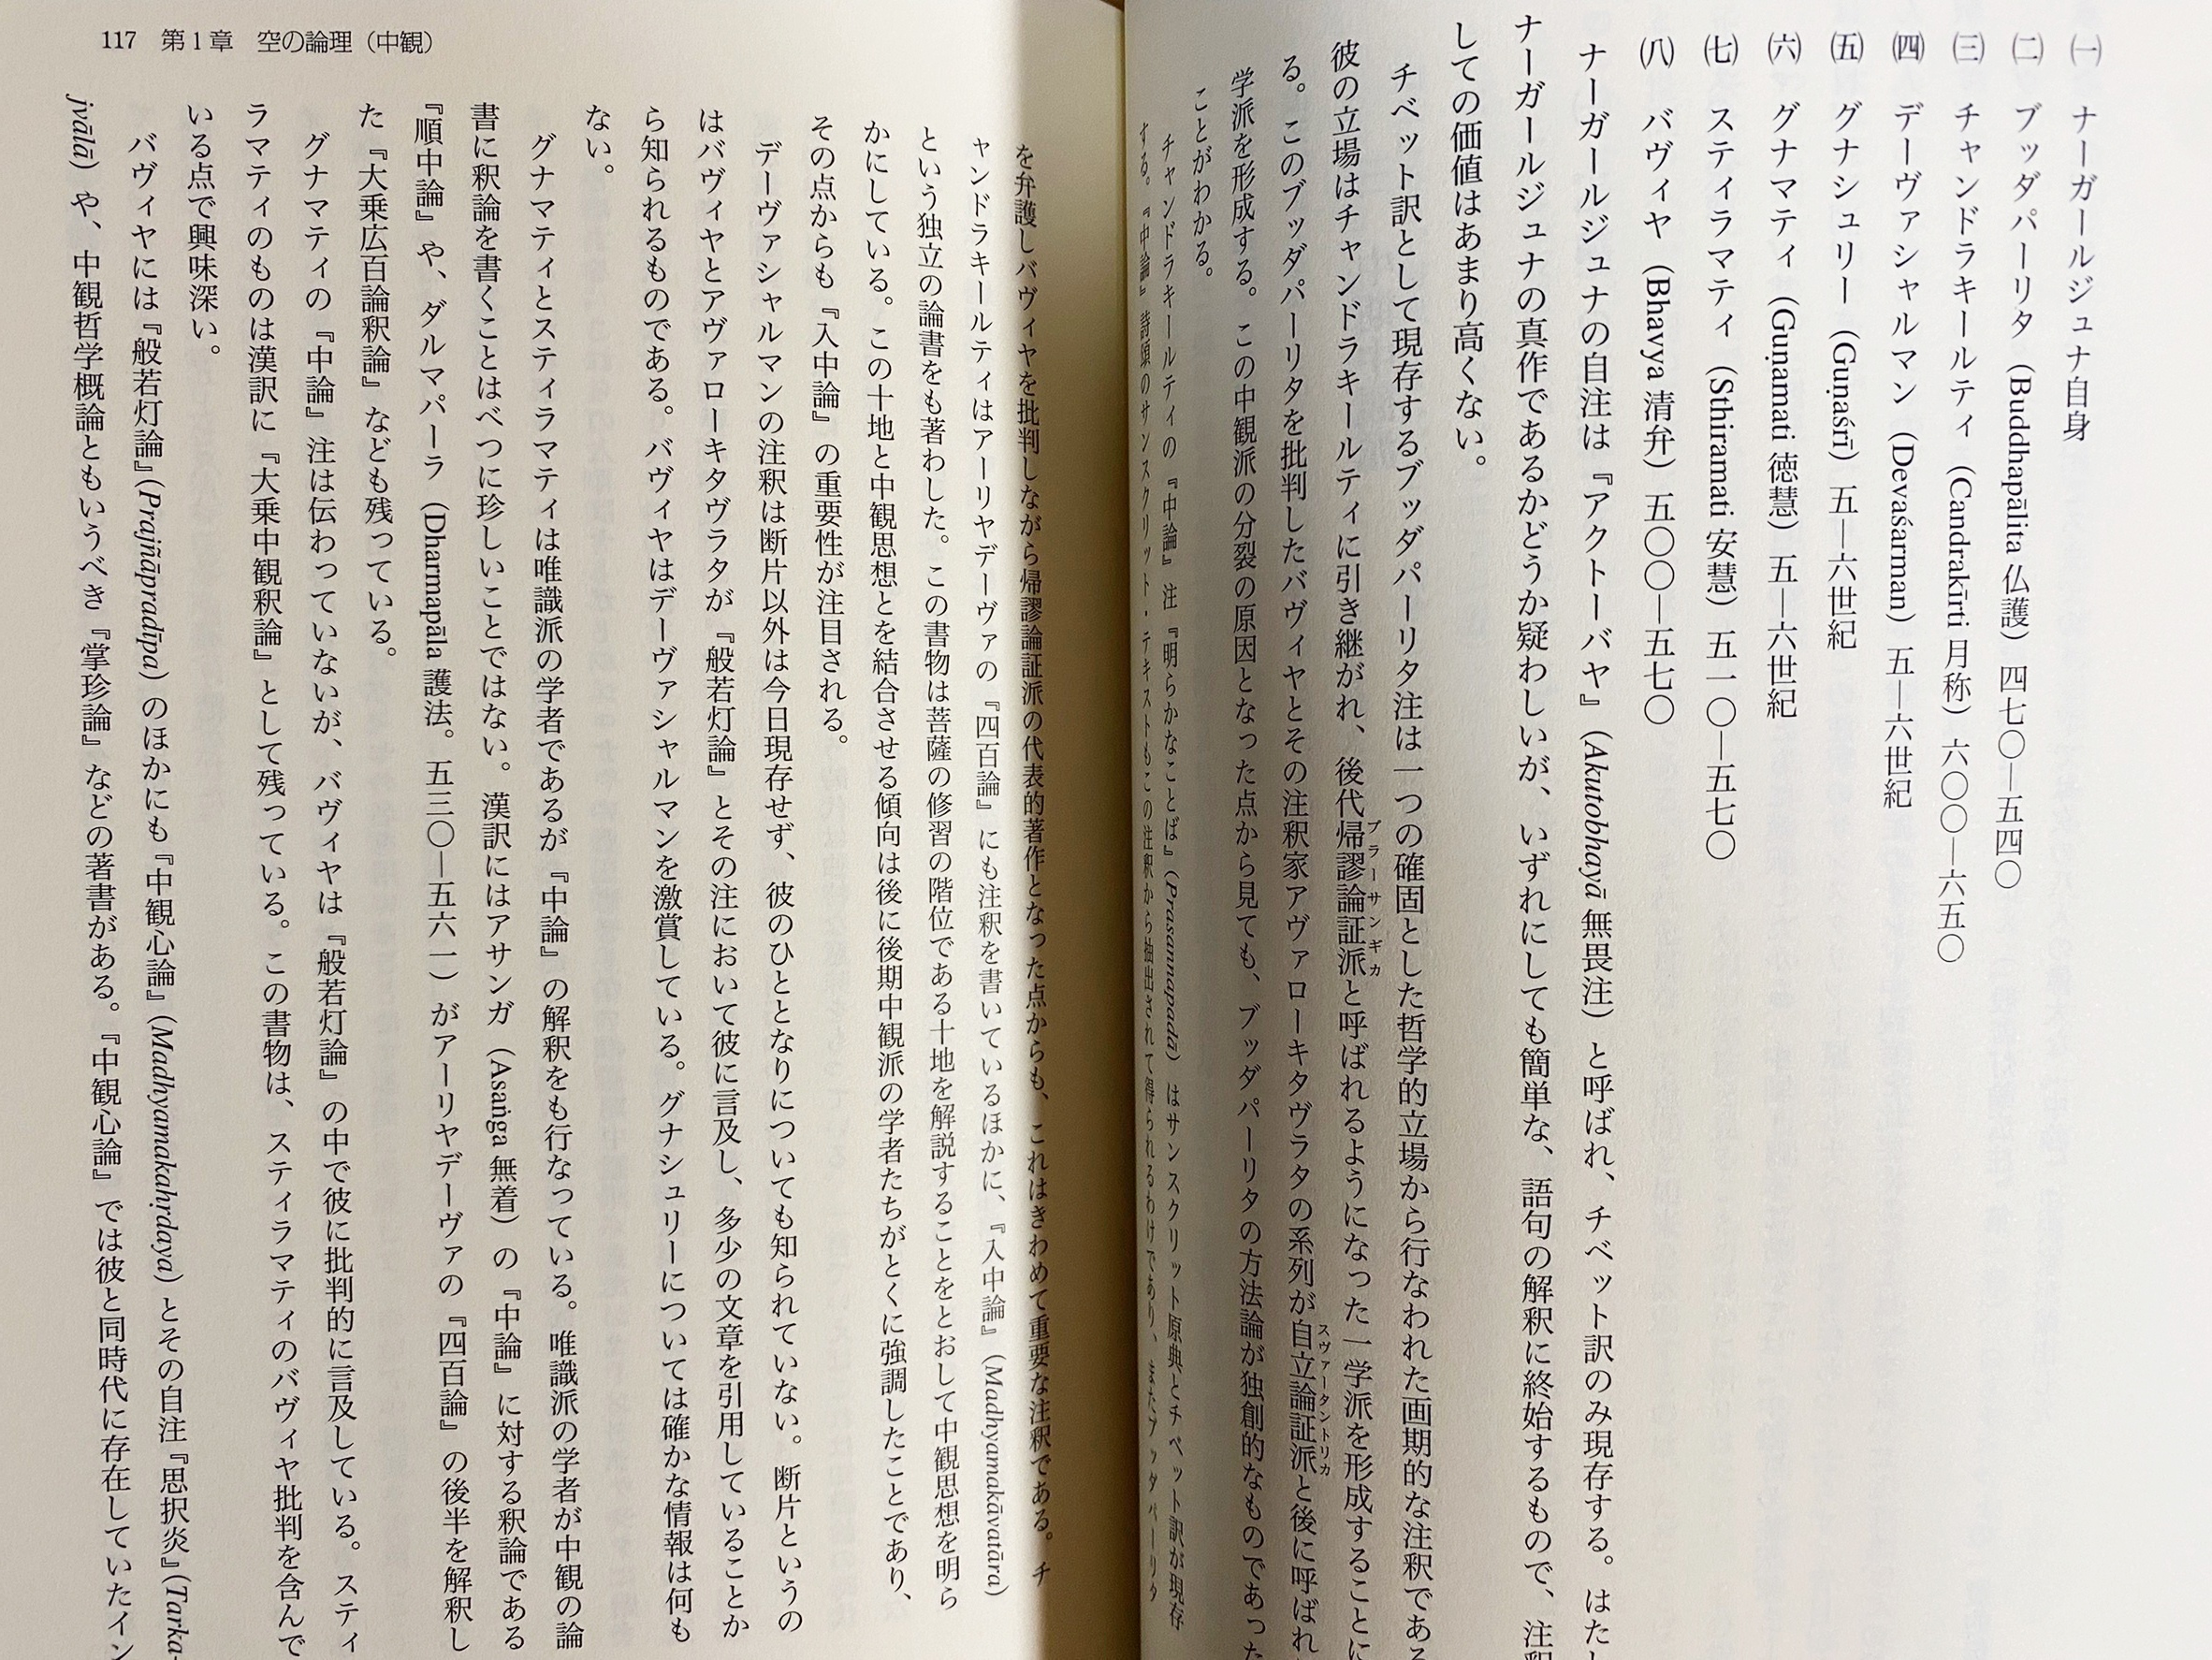 ㈠　ナーガールジュナ自身
㈡　ブッダパーリタ（Buddhapālita 仏護）四七〇―五四〇
㈢　チャンドラキールティ（Candrakīrti 月称）六〇〇―六五〇
㈣　デーヴァシャルマン（Devaśarman）五―六世紀
㈤　グナシュリー（Guṇaśrī）五―六世紀
㈥　グナマティ（Guṇamati 徳慧）五―六世紀
㈦　スティラマティ（Sthiramati 安慧）五一〇―五七〇
㈧　バヴィヤ（Bhavya 清弁）五〇〇―五七〇
ナーガールジュナの自注は『アクトーバヤ』（Akutobhayā 無畏注）と呼ばれ、チベット訳のみ現存する。はたし
ナーガールジュナの真作であるかどうか疑わしいが、いずれにしても簡単な、語句の解釈に終始するもので、注釈
しての価値はあまり高くない。
チベット訳として現存するブッダパーリタ注は一つの確固とした哲学的立場から行なわれた画期的な注釈である
彼の立場はチャンドラキールティに引き継がれ、後代帰謬論証派プラーサンギカと呼ばれるようになった一学派を形成することに
る。このブッダパーリタを批判したバヴィヤとその注釈家アヴァローキタヴラタの系列が自立論証派スヴァータントリカと後に呼ばれ
学派を形成する。この中観派の分裂の原因となった点から見ても、ブッダパーリタの方法論が独創的なものであった
ことがわかる。
チャンドラキールティの『中論』注『明らかなことば』（Prasannapadā）はサンスクリット原典とチベット訳が現存
する。『中論』詩頌のサンスクリット・テキストもこの注釈から抽出されて得られるわけであり、またブッダパーリタ
117　第1章　空の論理（中観）
を弁護しバヴィヤを批判しながら帰謬論証派の代表的著作となった点からも、これはきわめて重要な注釈である。チ
ャンドラキールティはアーリヤデーヴァの『四百論』にも注釈を書いているほかに、『入中論』（Madhyamakāvatāra）
という独立の論書をも著わした。この書物は菩薩の修習の階位である十地を解説することをとおして中観思想を明ら
かにしている。この十地と中観思想とを結合させる傾向は後に後期中観派の学者たちがとくに強調したことであり、
その点からも『入中論』の重要性が注目される。
デーヴァシャルマンの注釈は断片以外は今日現存せず、彼のひととなりについても知られていない。断片というの
はバヴィヤとアヴァローキタヴラタが『般若灯論』とその注において彼に言及し、多少の文章を引用していることか
ら知られるものである。バヴィヤはデーヴァシャルマンを激賞している。グナシュリーについては確かな情報は何も
ない。
グナマティとスティラマティは唯識派の学者であるが『中論』の解釈をも行なっている。唯識派の学者が中観の論
書に釈論を書くことはべつに珍しいことではない。漢訳にはアサンガ（Asaṅga 無着）の『中論』に対する釈論である
『順中論』や、ダルマパーラ（Dharmapāla 護法。五三〇―五六一）がアーリヤデーヴァの『四百論』の後半を解釈し
た『大乗広百論釈論』なども残っている。
グナマティの『中論』注は伝わっていないが、バヴィヤは『般若灯論』の中で彼に批判的に言及している。スティ
ラマティのものは漢訳に『大乗中観釈論』として残っている。この書物は、スティラマティのバヴィヤ批判を含んで
いる点で興味深い。
バヴィヤには『般若灯論』（Prajñāpradīpa）のほかにも『中観心論』（Madhyamakahṛdaya）とその自注『思択炎』（Tarka-
jvālā）や、中観哲学概論ともいうべき『掌珍論』などの著書がある。『中観心論』では彼と同時代に存在していたイン